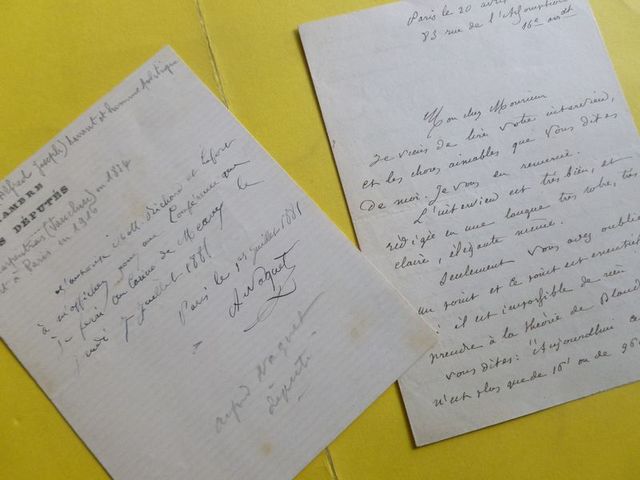 Alfred Joseph) savant et homme politique
CHAMBRE
DES DÉPUTÉS
Carpentras (Vaucluse) en 1834
à Paris en 1916
J'autorise M.M. Richard et
à m'afficher pour une Conférence que
je ferai au
jeudi 7 juillet 1881
Paris le 1er juillet 1881
A Naquet
Alfred Naquet
député
Paris le 20 avril
83 rue de l'Assomption
16e arrdt
Mon cher Monsieur
Je viens de lire votre interview,
et les choses aimables que vous dites
de moi. Je vous en remercie.
L'interview est très bien, et
rédigée en une langue très sobre, très
claire, élégante même.
Seulement vous avez oublié
un point et ce point est essentiel
il est impossible de rien
prendre à la théorie de
vous dites: "Aujourd'hui ce
n'est plus que de 101 ou de 96